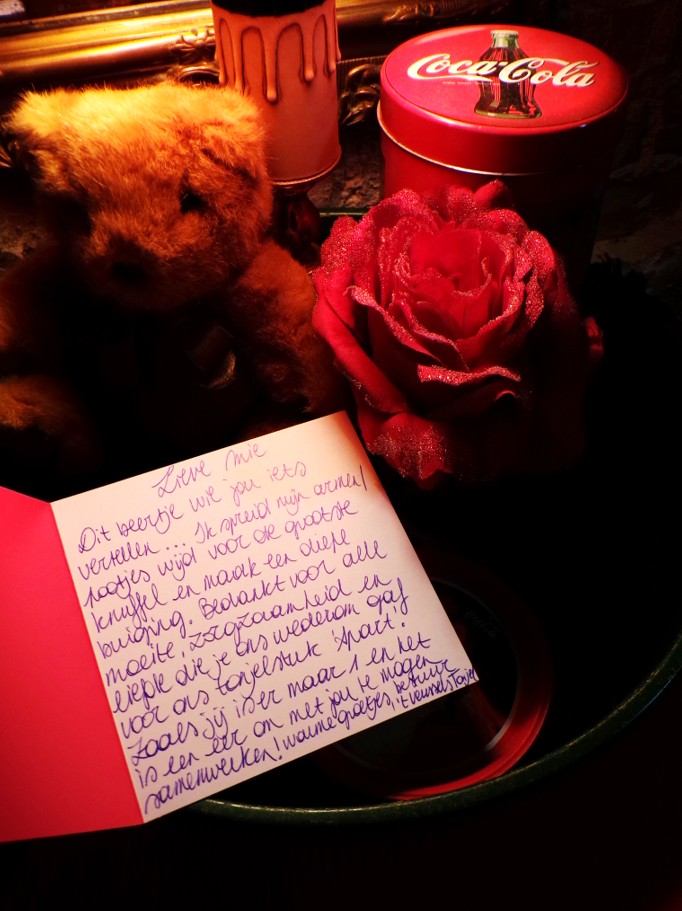 Coca-Cola
Lieve mie
Dit beertje wil jou iets
vertellen ... Ik spreid mijn armen/
pootjes wijd voor de grootste
knuffel en maak een diepe
buiging. Bedankt voor alle
moeite, zorgzaamheid en
liefde die je ons wederom gaf
voor ons tonjelstuk 'Apart'.
Zoals jij is er maar 1 en het
is een eer om met jou te mogen
samenwerken! warme groetjes, bestuur
't veussels Toneel